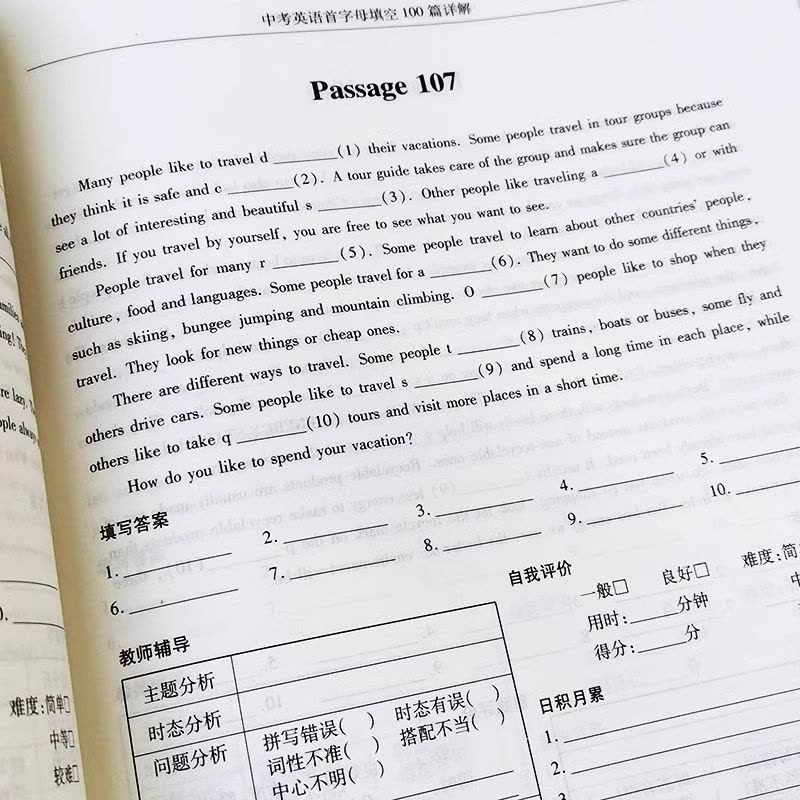 中考英语首字母填空100篇详解
Passage 107
Many people like to travel d ________(1) their vacations. Some people travel in tour groups because
they think it is safe and c ________(2). A tour guide takes care of the group and makes sure the group can
see a lot of interesting and beautiful s ________(3). Other people like traveling a ________(4) or with
friends. If you travel by yourself, you are free to see what you want to see.
People travel for many r ________(5). Some people travel to learn about other countries' people,
culture, food and languages. Some people travel for a ________(6). They want to do some different things,
such as skiing, bungee jumping and mountain climbing. O ________(7) people like to shop when they
travel. They look for new things or cheap ones.
There are different ways to travel. Some people t ________(8) trains, boats or buses, some fly and
others drive cars. Some people like to travel s ________(9) and spend a long time in each place, while
others like to take q ________(10) tours and visit more places in a short time.
How do you like to spend your vacation?
填写答案
1. ________ 2. ________ 3. ________ 4. ________ 5. ________
6. ________ 7. ________ 8. ________ 9. ________ 10. ________
教师辅导
主题分析
时态分析
问题分析
拼写错误( ) 时态有误( )
词性不准( ) 搭配不当( )
中心不明( )
自我评价
一般□ 良好□ 难度:简
用时:____分钟 中
得分:____分
日积月累
1.
2.
3.
难度:简单□
中等□
较难□